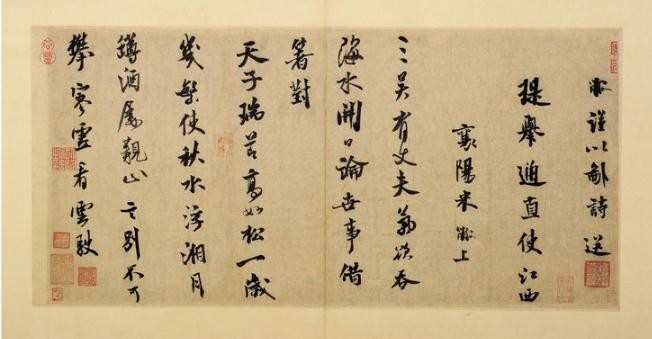 黻謹以鄙詩送
提舉通直使江西
襄陽米黻上
三吳有丈夫氣欲吞
海水開口論世事借
箸對
天子瑞節高如松一歲
幾繁使秋水浮湘月
罇酒屢親止言別不可
攀寥雲看雲駛